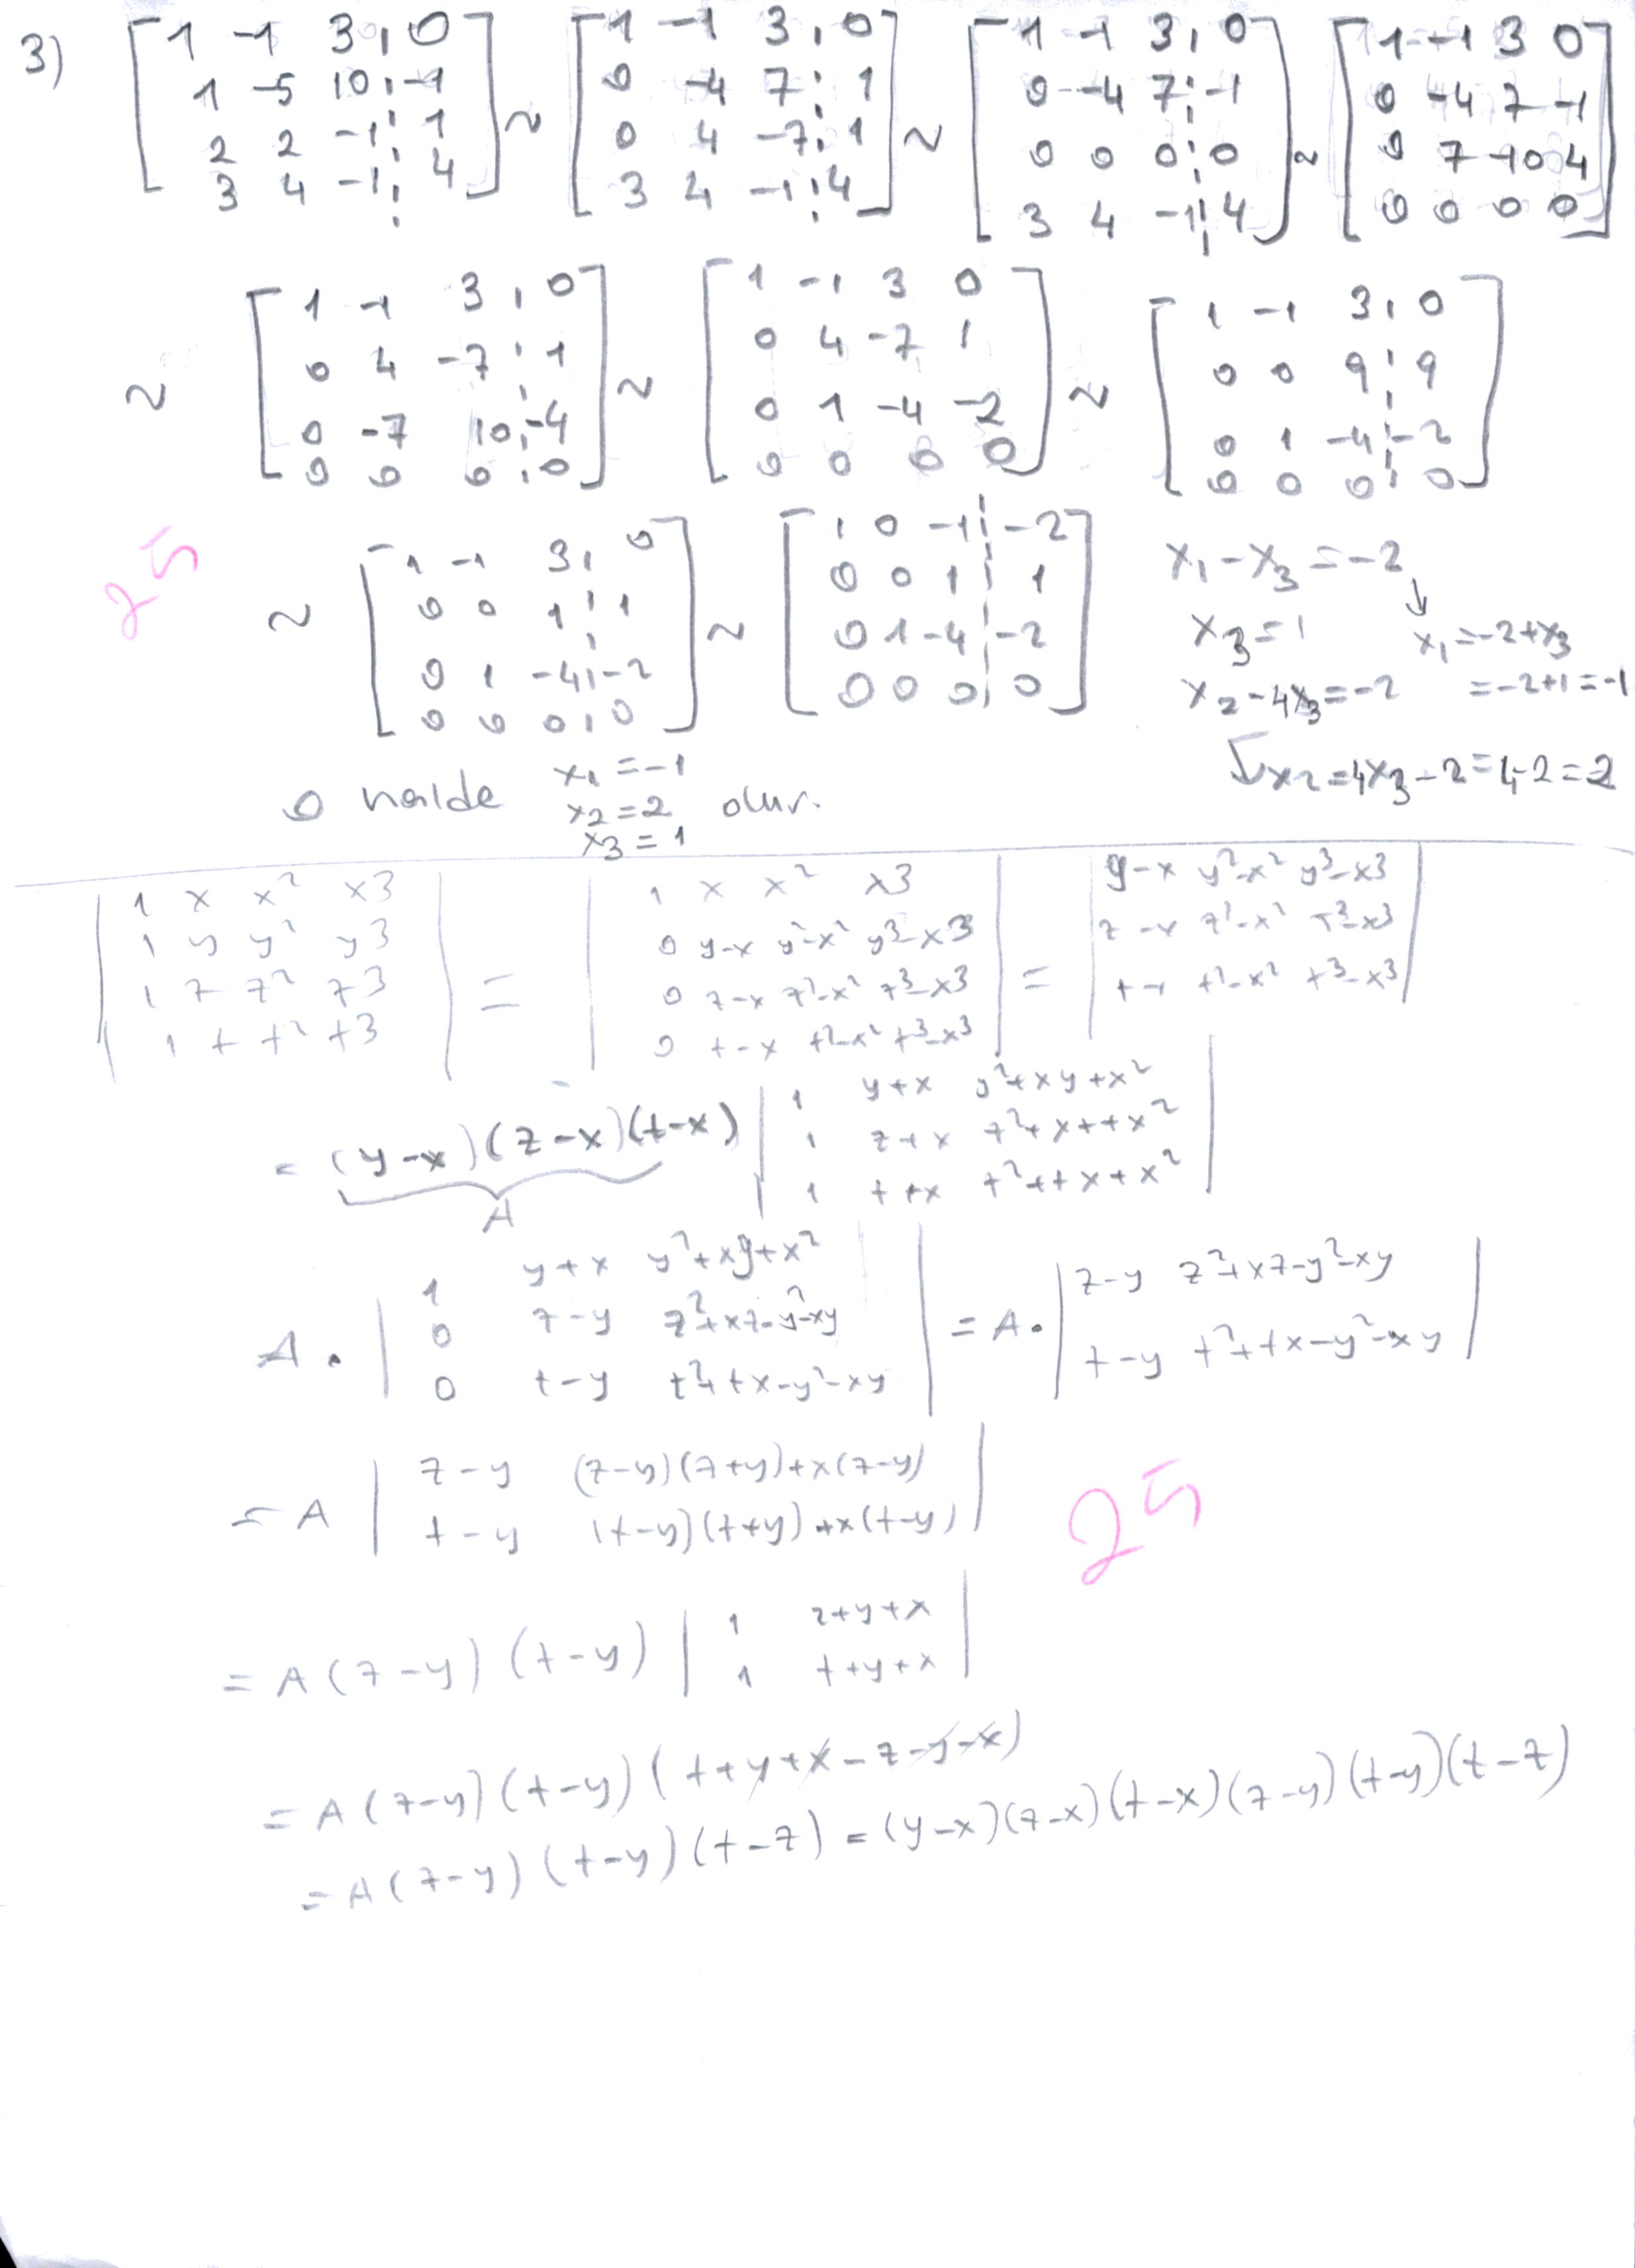 3) [1 -1 3 ¦ 0; 1 -5 10 ¦ -1; 2 2 -1 ¦ 1; 3 4 -1 ¦ 4] ~ [1 -1 3 ¦ 0; 0 -4 7 ¦ 1; 0 4 -7 ¦ 1; 3 4 -1 ¦ 4] ~ [1 -1 3 ¦ 0; 0 -4 7 ¦ -1; 0 0 0 ¦ 0; 3 4 -1 ¦ 4] ~ [1 -1 3 0; 0 -4 7 -1; 0 7 -10 4; 0 0 0 0]
~ [1 -1 3 ¦ 0; 0 4 -7 ¦ 1; 0 -7 10 ¦ -4; 0 0 0 ¦ 0] ~ [1 -1 3 0; 0 4 -7 1; 0 1 -4 -2; 0 0 0 0] ~ [1 -1 3 ¦ 0; 0 0 9 ¦ 9; 0 1 -4 ¦ -2; 0 0 0 ¦ 0]
25
~ [1 -1 3 ¦ 0; 0 0 1 ¦ 1; 0 1 -4 ¦ -2; 0 0 0 ¦ 0] ~ [1 0 -1 ¦ -2; 0 0 1 ¦ 1; 0 1 -4 ¦ -2; 0 0 0 ¦ 0]
x₁-x₃=-2
x₃=1 ↓ x₁=-2+x₃
x₂-4x₃=-2 =-2+1=-1
↳ x₂=4x₃-2=4-2=2
O halde x₁=-1 x₂=2 x₃=1 olur.
|1 x x² x³; 1 y y² y³; 1 z z² z³; 1 t t² t³| = |1 x x² x³; 0 y-x y²-x² y³-x³; 0 z-x z²-x² z³-x³; 0 t-x t²-x² t³-x³| = |y-x y²-x² y³-x³; z-x z²-x² z³-x³; t-x t²-x² t³-x³|
= (y-x)(z-x)(t-x) |1 y+x y²+xy+x²; 1 z+x z²+x++x²; 1 t+x t²+tx+x²|
A
A . |1 y+x y²+xy+x²; 0 z-y z²+xz-y²-xy; 0 t-y t²+tx-y²-xy| = A . |z-y z²+xz-y²-xy; t-y t²+tx-y²-xy|
= A |z-y (z-y)(z+y)+x(z-y); t-y (t-y)(t+y)+x(t-y)|
25
= A(z-y)(t-y) |1 z+y+x; 1 t+y+x|
= A(z-y)(t-y)(t+y+x-z-y-x)
= A(z-y)(t-y)(t-z) = (y-x)(z-x)(t-x)(z-y)(t-y)(t-z)